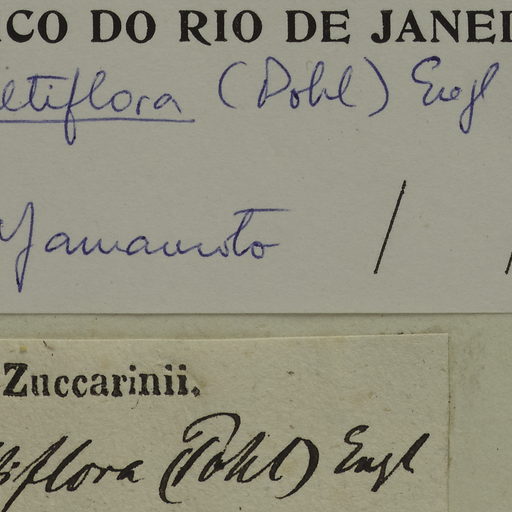 ICO DO RIO DE JANEI
ltiflora (Pohl) Engl
Yamamoto / /
Zuccarinii.
iflora (Pohl) Engl